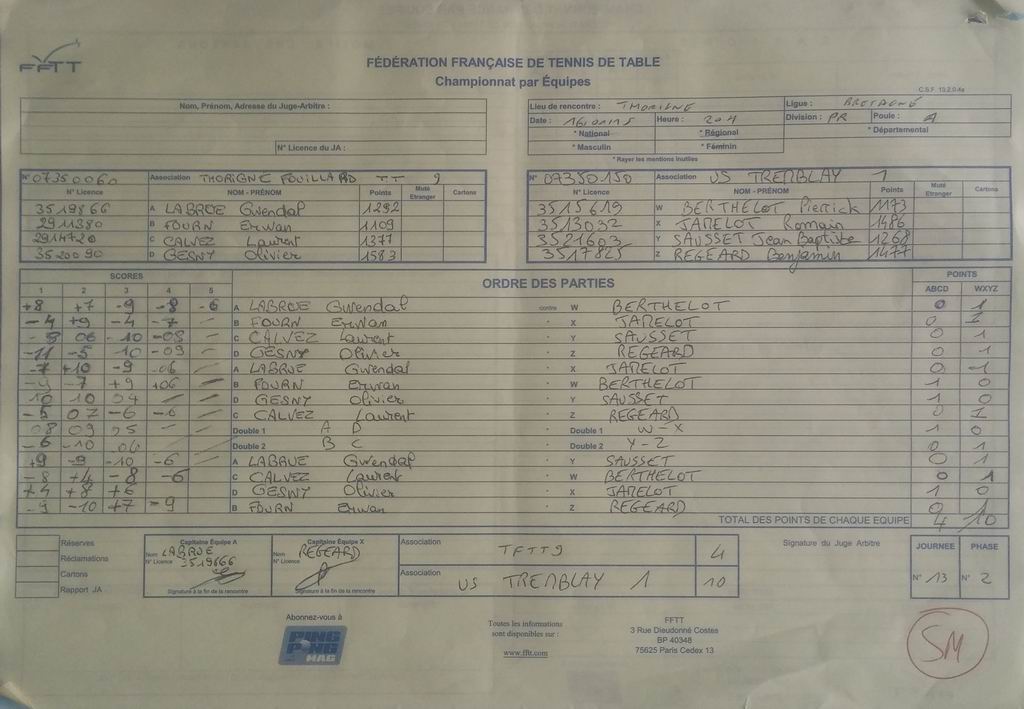 FFTT
FÉDÉRATION FRANÇAISE DE TENNIS DE TABLE
Championnat par Équipes
C.S.F. 13.2.0.4a
Nom, Prénom, Adresse du Juge-Arbitre :
N° Licence du JA :
Lieu de rencontre : THORIGNE Ligue : BRETAGNE
Date : Heure : 20H Division : PR Poule : A
* National * Régional * Départemental
* Masculin * Féminin
* Rayer les mentions inutiles
N° 07350060 Association THORIGNE FOUILLARD TT 9
N° Licence NOM - PRÉNOM Points Muté Etranger Cartons
3519866 A LABRUE Gwendal 1292
2911380 B FOURN Erwan 1109
2914720 C CALVEZ Laurent 1377
3520090 D GESNY Olivier 1583
N° 07350150 Association US TREMBLAY 1
N° Licence NOM - PRÉNOM Points Muté Etranger Cartons
3515619 W BERTHELOT Pierrick 1173
3513032 X JAMELOT Romain 1486
3521603 Y SAUSSET Jean Baptiste 1268
3517825 Z REGEARD Benjamin 1477
SCORES ORDRE DES PARTIES POINTS
1 2 3 4 5 ABCD WXYZ
+8 +7 -9 -8 -6 A LABRUE Gwendal contre W BERTHELOT 0 1
-4 +9 -4 -7 B FOURN Erwan X JAMELOT 0 1
-9 06 -10 -08 C CALVEZ Laurent Y SAUSSET 0 1
-11 -5 10 -09 D GESNY Olivier Z REGEARD 0 1
-7 +10 -9 -06 A LABRUE Gwendal X JAMELOT 0 1
-7 +9 +06 B FOURN Erwan W BERTHELOT 1 0
10 10 04 D GESNY Olivier Y SAUSSET 1 0
-5 07 -6 -6 C CALVEZ Laurent Z REGEARD 0 1
08 09 05 Double 1 A D Double 1 W-X 1 0
-6 -10 06 Double 2 B C Double 2 Y-Z 0 1
+9 -9 -10 -6 A LABRUE Gwendal Y SAUSSET 0 1
-8 +4 -8 -6 C CALVEZ Laurent W BERTHELOT 0 1
+4 +8 +6 D GESNY Olivier X JAMELOT 1 0
-9 -10 +7 -9 B FOURN Erwan Z REGEARD 0 1
TOTAL DES POINTS DE CHAQUE EQUIPE 4 10
Réserves
Réclamations
Cartons
Rapport JA
Capitaine Équipe A
Nom LABRUE
N° Licence 3519866
Signature à la fin de la rencontre
Capitaine Équipe X
Nom REGEARD
N° Licence
Signature à la fin de la rencontre
Association TFTT9 4
Association US TREMBLAY 1 10
Signature du Juge Arbitre
JOURNEE PHASE
N° 13 N° 2
Abonnez-vous à
PING PONG MAG
Toutes les informations
sont disponibles sur :
www.fftt.com
FFTT
3 Rue Dieudonné Costes
BP 40348
75625 Paris Cedex 13
SM